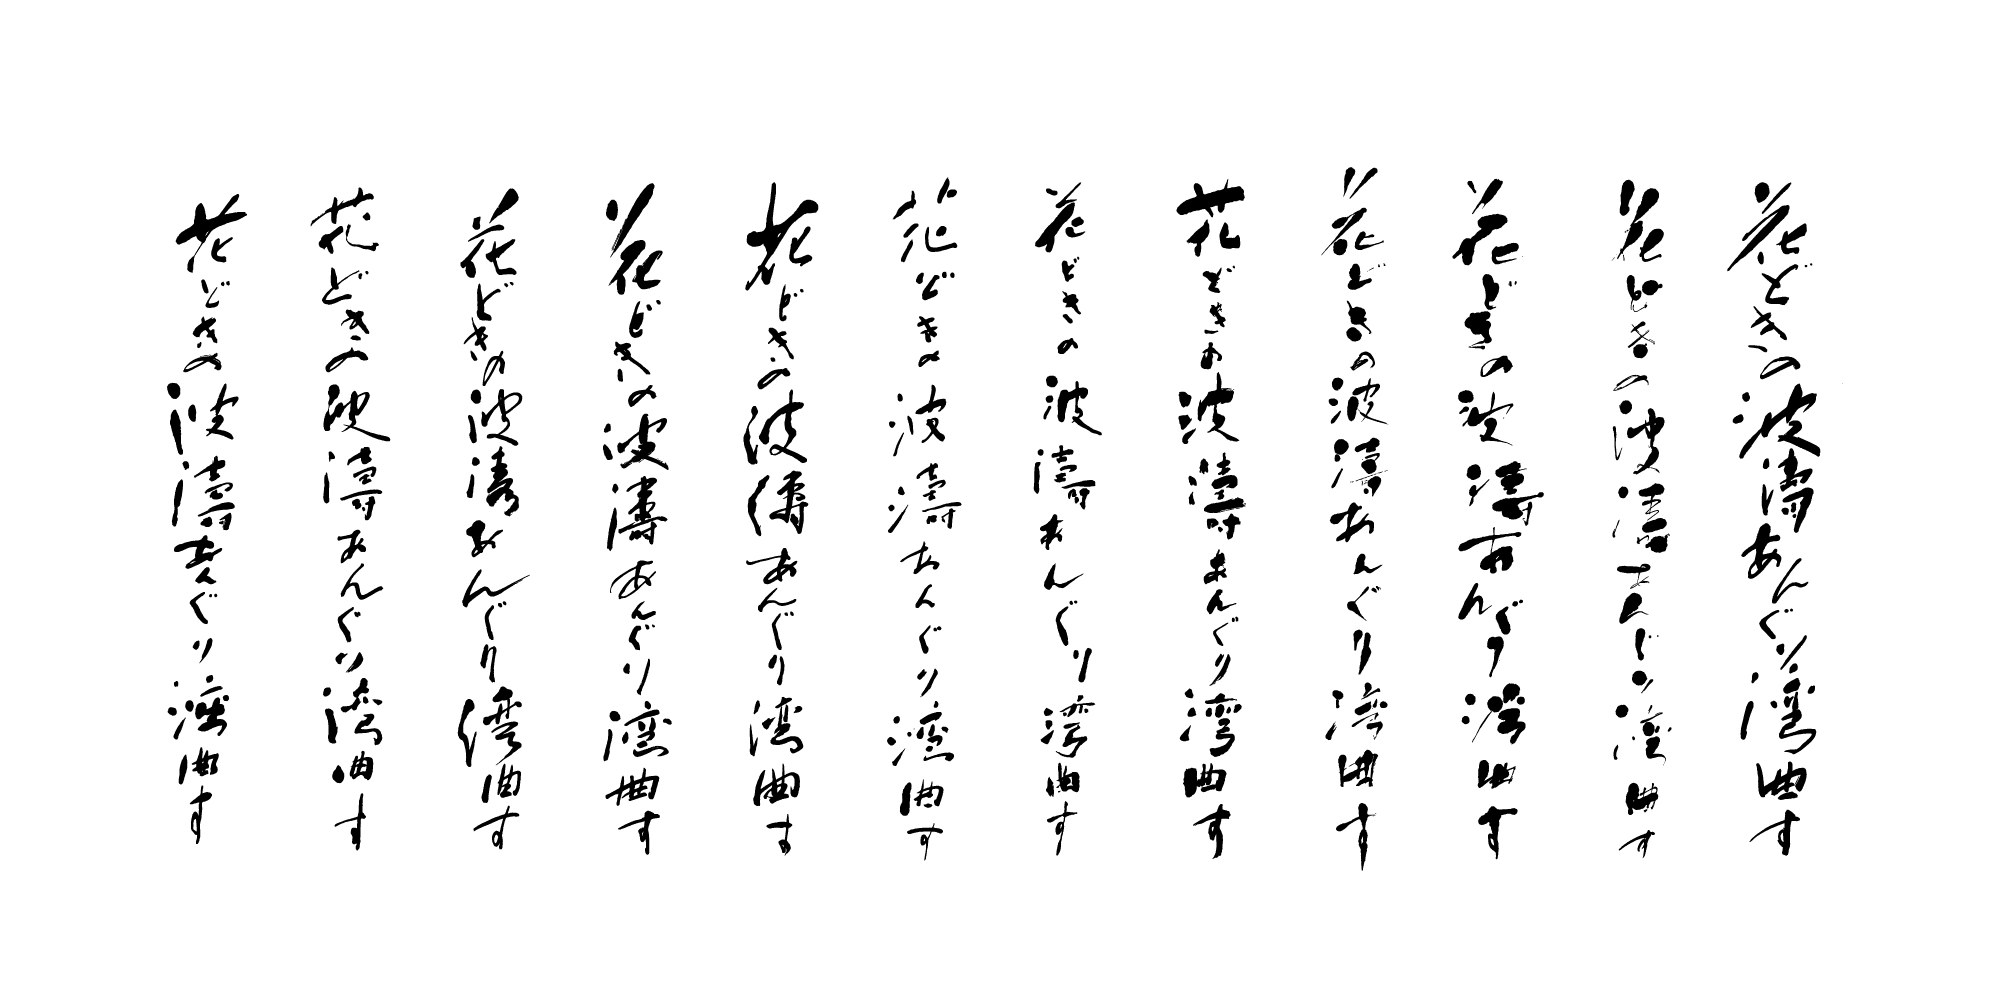 花どきの波濤あんぐり湾曲す
花どきの波濤あんぐり湾曲す
花どきの波濤あんぐり湾曲す
花どきの波濤あんぐり湾曲す
花どきの波濤あんぐり湾曲す
花どきの波濤あんぐり湾曲す
花どきの波濤あんぐり湾曲す
花どきの波濤あんぐり湾曲す
花どきの波濤あんぐり湾曲す
花どきの波濤あんぐり湾曲す
花どきの波濤あんぐり湾曲す
花どきの波濤あんぐり湾曲す